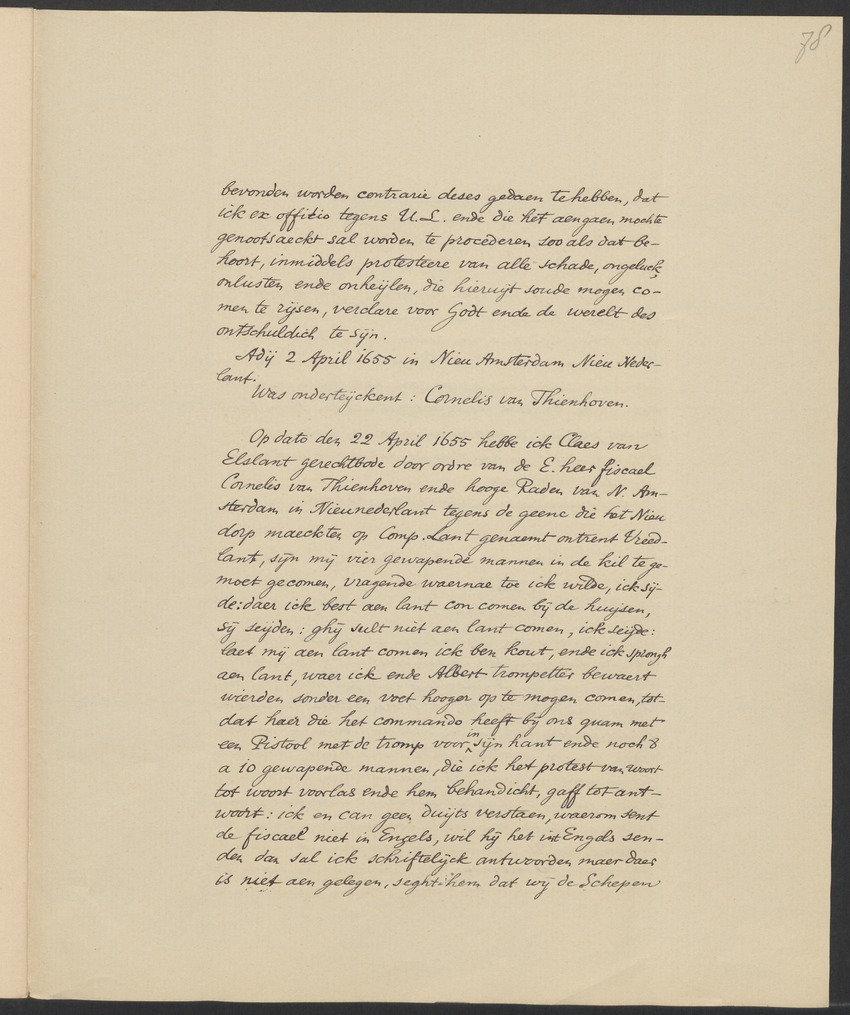 78
bevonden worden contrarie deses gedaen te hebben, dat
ick ex offitio tegens U.L. ende die het aengaen mochte
genootsaeckt sal worden te procederen soo als dat be-
hoort, inmiddels protesteere van alle schade, ongeluck,
onlusten ende onheijlen, die hieruijt soude mogen co-
men te rijsen, verclare voor Godt ende de werelt des
ontschuldich te sijn.
Adij 2 April 1655 in Nieu Amsterdam Nieu Neder-
lant.
Was onderteijckent : Cornelis van Thienhoven.
Op dato den 22 April 1655 hebbe ick Claes van
Elslant gerechtbode door ordre van de E. heer fiscael
Cornelis van Thienhoven ende hooge Raden van N. Am-
sterdam in Nieunederlant tegens de geene die het Nieu
dorp maeckten op Comp. Lant genaemt ontrent Vreed-
lant, sijn mij vier gewapende mannen in de kil te ge-
moet gecomen, vragende waernae toe ick wilde, ick sij-
de: daer ick best aen lant con comen bij de huijsen,
sij seijden : ghij sult niet aen lant comen, ick seijde:
laet mij aen lant comen ick ben kout, ende ick sprongh
aen lant, waer ick ende Albert trompetter bewaert
wierden sonder een voet hooger op te mogen comen, tot-
dat haer die het commando heeft bij ons quam met
een Pistool met de tromp voor in sijn hant ende noch 8
a 10 gewapende mannen, die ick het protest van woort
tot woort voorlas ende hem behandicht, gaff tot ant-
woort : ick en can geen duijts verstaen, waerom sent
de fiscael niet in Engels, wil hij het int Engels sen-
den dan sal ick schriftelijck antwoorden maer daer
is niet aen gelegen, seght hem dat wij de Schepen